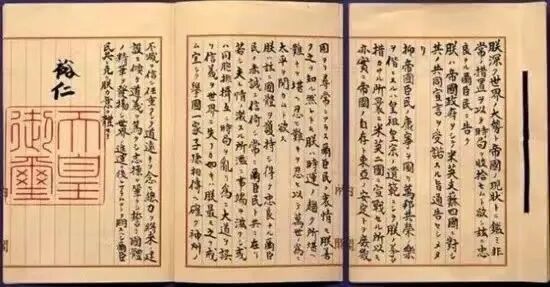 朕深ク世界ノ大勢ト帝國ノ現状トニ鑑ミ非
常ノ措置ヲ以テ時局ヲ收拾セムト欲シ茲ニ忠
良ナル爾臣民ニ告ク
朕ハ帝國政府ヲシテ米英支蘇四國ニ對シ
其ノ共同宣言ヲ受諾スル旨通告セシメタ
リ
抑〻帝國臣民ノ康寧ヲ圖リ萬邦共榮ノ樂
ヲ偕ニスルハ皇祖皇宗ノ遺範ニシテ朕ノ拳〻
措カサル所曩ニ米英二國ニ宣戰セル所以モ
亦實ニ帝國ノ自存ト東亞ノ安定トヲ庶幾
固ヨリ尋常ニアラス爾臣民ノ衷情モ朕善
ク之ヲ知ル然レトモ朕ハ時運ノ趨ク所堪ヘ
難キヲ堪ヘ忍ヒ難キヲ忍ヒ以テ萬世ノ爲ニ
太平ヲ開カムト欲ス
朕ハ茲ニ國體ヲ護持シ得テ忠良ナル爾臣
民ノ赤誠ニ信倚シ常ニ爾臣民ト共ニ在リ
若シ夫レ情ノ激スル所濫ニ事端ヲ滋クシ或
ハ同胞排擠互ニ時局ヲ亂リ爲ニ大道ヲ誤
リ信義ヲ世界ニ失フカ如キハ朕最モ之ヲ戒
ム宜シク擧國一家子孫相傳ヘ確ク神州ノ
不滅ヲ信シ任重クシテ道遠キヲ念ヒ總力ヲ將來ノ建
設ニ傾ケ道義ヲ篤クシ志操ヲ鞏クシ誓テ國體
ノ精華ヲ發揚シ世界ノ進運ニ後レサラムコトヲ期スヘシ爾臣
民其レ克ク朕カ意ヲ體セヨ
裕仁
天皇
御璽